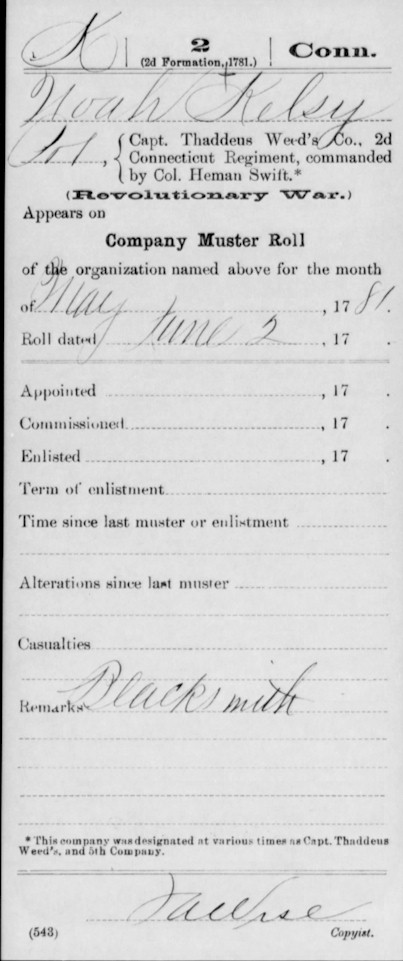 K | 2 | Conn.
(2d Formation, 1781.)
Noah Kelsy
, { Capt. Thaddeus Weed's Co., 2d
Connecticut Regiment, commanded
by Col. Heman Swift.*
(Revolutionary War.)
Appears on
Company Muster Roll
of the organization named above for the month
of May, 1781.
Roll dated June 2, 17 .
Appointed, 17 .
Commissioned, 17 .
Enlisted, 17 .
Term of enlistment
Time since last muster or enlistment
Alterations since last muster
Casualties
Remarks Blacksmith
* This company was designated at various times as Capt. Thaddeus
Weed's, and 5th Company.
(543) Copyist.